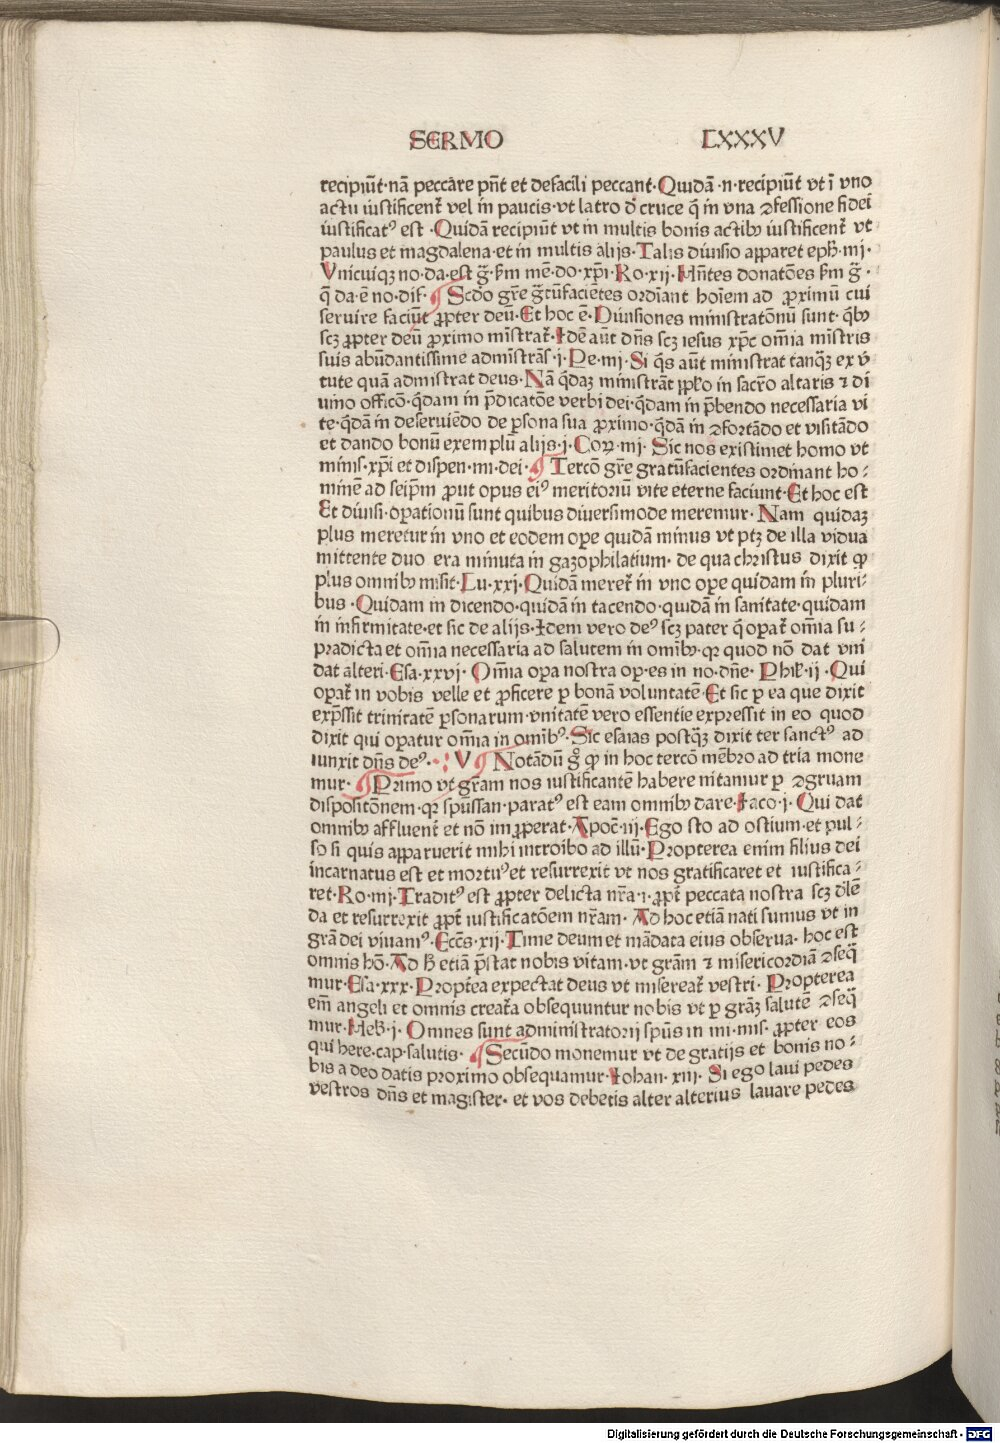 SERMO LXXXV
recipiūt·nā peccare pn̄t et defacili peccant·Quidā·n·recipiūt vt ī vno
actu iustificent᷑ vel in paucis·vt latro ī cruce q̄ in vna ꝯfessione fidei
iustificatꝰ est ·Quidā recipiūt vt in multis bonis actibꝫ iustificent᷑ vt
paulus et magdalena·et in multis alijs·Talis diuisio apparet eph̄·iiij·
Vnicuiqꝫ no·da·est gr̄·ẜm mē·do·xp̄i·Ro·xij·Hn̄tes donatōes ẜm gr̄·
q̄ da·ē no·dif· Scd̓o gr̄e gr̄tūfaciētes ordiant hoīem ad ꝓximū cui
seruire faciūt ꝓpter deū·Et hoc ē·Diuisiones ministratōnū sunt·qꝫ
scꝫ ꝓpter deū ꝓximo mīstrat᷑·Idē aūt dn̄s scꝫ iesus xp̄c om̄ia mīstris
suis abūdantissime admīstrās·i·Pe·iiij·Si q̄s aūt ministrat tanqꝫ ex v̓
tute quā admistrat deus·Nā q̄daꝫ ministrāt pp̄lo in sacr̄o altaris ⁊ di
uino officō·q̄dam in p̄dicatōe verbi dei·q̄dam in p̄bendo necessaria vi
te·q̄dā in deseruiēdo de ꝑsona sua ꝓximo·q̄dā in ꝯfortādo et visitādo
et dando bonū exemplū alijs·j·Coꝝ·iiij· Sic nos existimet homo vt
minis·xp̄i et dispen·mi·dei· Tercō gr̄e gratūfacientes ordinant ho⸗
minē ad seip̄m ꝓut opus eiꝰ meritoriū vite eterne faciunt·Et hoc est
Et diuisi·oꝑationū sunt quibus diuersimode meremur· Nam quidaꝫ
plus meretur in vno et eodem oꝑe quidā minus vt ptꝫ de illa vidua
mittente duo era minuta in gazophilatium· de qua christus dixit ꝙ
plus omnibꝫ misit·Lu·xxj·Quidā meret᷑ in vno oꝑe quidam in pluri⸗
bus ·Quidam in dicendo·quidā in tacendo·quidā in sanitate·quidam
in infirmitate·et sic de alijs·Idem vero deꝰ scꝫ pater q̄ oꝑat᷑ om̄ia su⸗
pradicta et om̄ia necessaria ad salutem in omībꝫ·qꝛ quod nō dat vni
dat alteri·Esa·xxvj· Om̄ia oꝑa nostra oꝑ·es in no·dn̄e· Phil̓·ij ·Qui
oꝑat᷑ in vobis velle et ꝓficere ꝑ bonā voluntatē·Et sic ꝑ ea que dixit
exp̄ssit trinitatē ꝑsonarum·vnitatē vero essentie expressit in eo quod
dixit qui oꝑatur om̄ia in omībꝰ·Sic esaias postqꝫ dixit ter sanctꝰ ad
iunxit dn̄s deꝰ· V Notādū g̊ ꝙ in hoc tercō mēbro ad tria mone
mur· Primo vt gr̄am nos iustificantē habere nitamur ꝑ ꝯgruam
dispositōnem·qꝛ spūssan·paratꝰ est eam omnibꝫ dare·Iaco·j· Qui dat
omnibꝫ affluent᷑ et nō imꝓperat·Apoc̄·iij·Ego sto ad ostium·et pul⸗
so si quis apparuerit mihi introibo ad illū·Propterea enim filius dei
incarnatus est et mortuꝰ et resurrexit vt nos gratificaret et iustifica⸗
ret·Ro·iiij·Traditꝰ est ꝓpter delicta nr̄a·i·ꝓpt᷑ peccata nostra scꝫ d̓lē
da et resurrexit ꝓpt᷑ iustificatōem nr̄am· Ad hoc etiā nati sumus vt in
grā dei viuamꝰ·Eccēs·xij·Time deum et mādata eius obserua· hoc est
omnis hō·Ad ħ etiā p̄stat nobis vitam·vt gr̄am ⁊ misericordiā ꝯseq̄
mur·Esa·xxx·Propt̓ea expectat deus vt misereat᷑ vestri· Propterea
em̄ angeli et omnis creat᷑a obsequuntur nobis vt ꝑ gr̄aꝫ salutē ꝯseq̄
mur·Heb̄·j· Omnes sunt administratorij spūs in mi·mis· ꝓpter eos
qui here·cap·salutis· Secūdo monemur vt de gratijs et bonis no⸗
bis a deo datis proximo obsequamur·Iohan·xiij· Si ego laui pedes
vestros dn̄s et magister· et vos debetis alter alterius lauare pedes
Digitalisierung gefördert durch die Deutsche Forschungsgemeinschaft · DFG